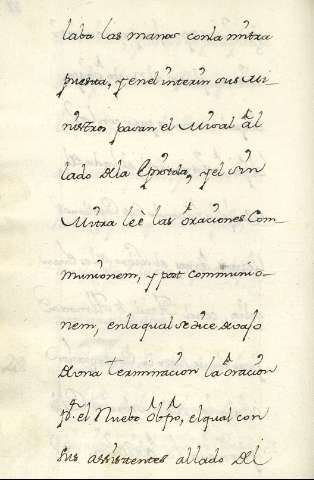 laba las manos con la mitra
puesta, y en el interin sus Mi-
nistros pasan el Misal al
lado dela Epistola, y el sin
Mitra leè las oraciones Com-
munionem, y post communio-
nem, en la qual se dice devajo
de una terminacion la oracion
pª. el Nuebo obpo, el qual con
sus assistentes al lado del